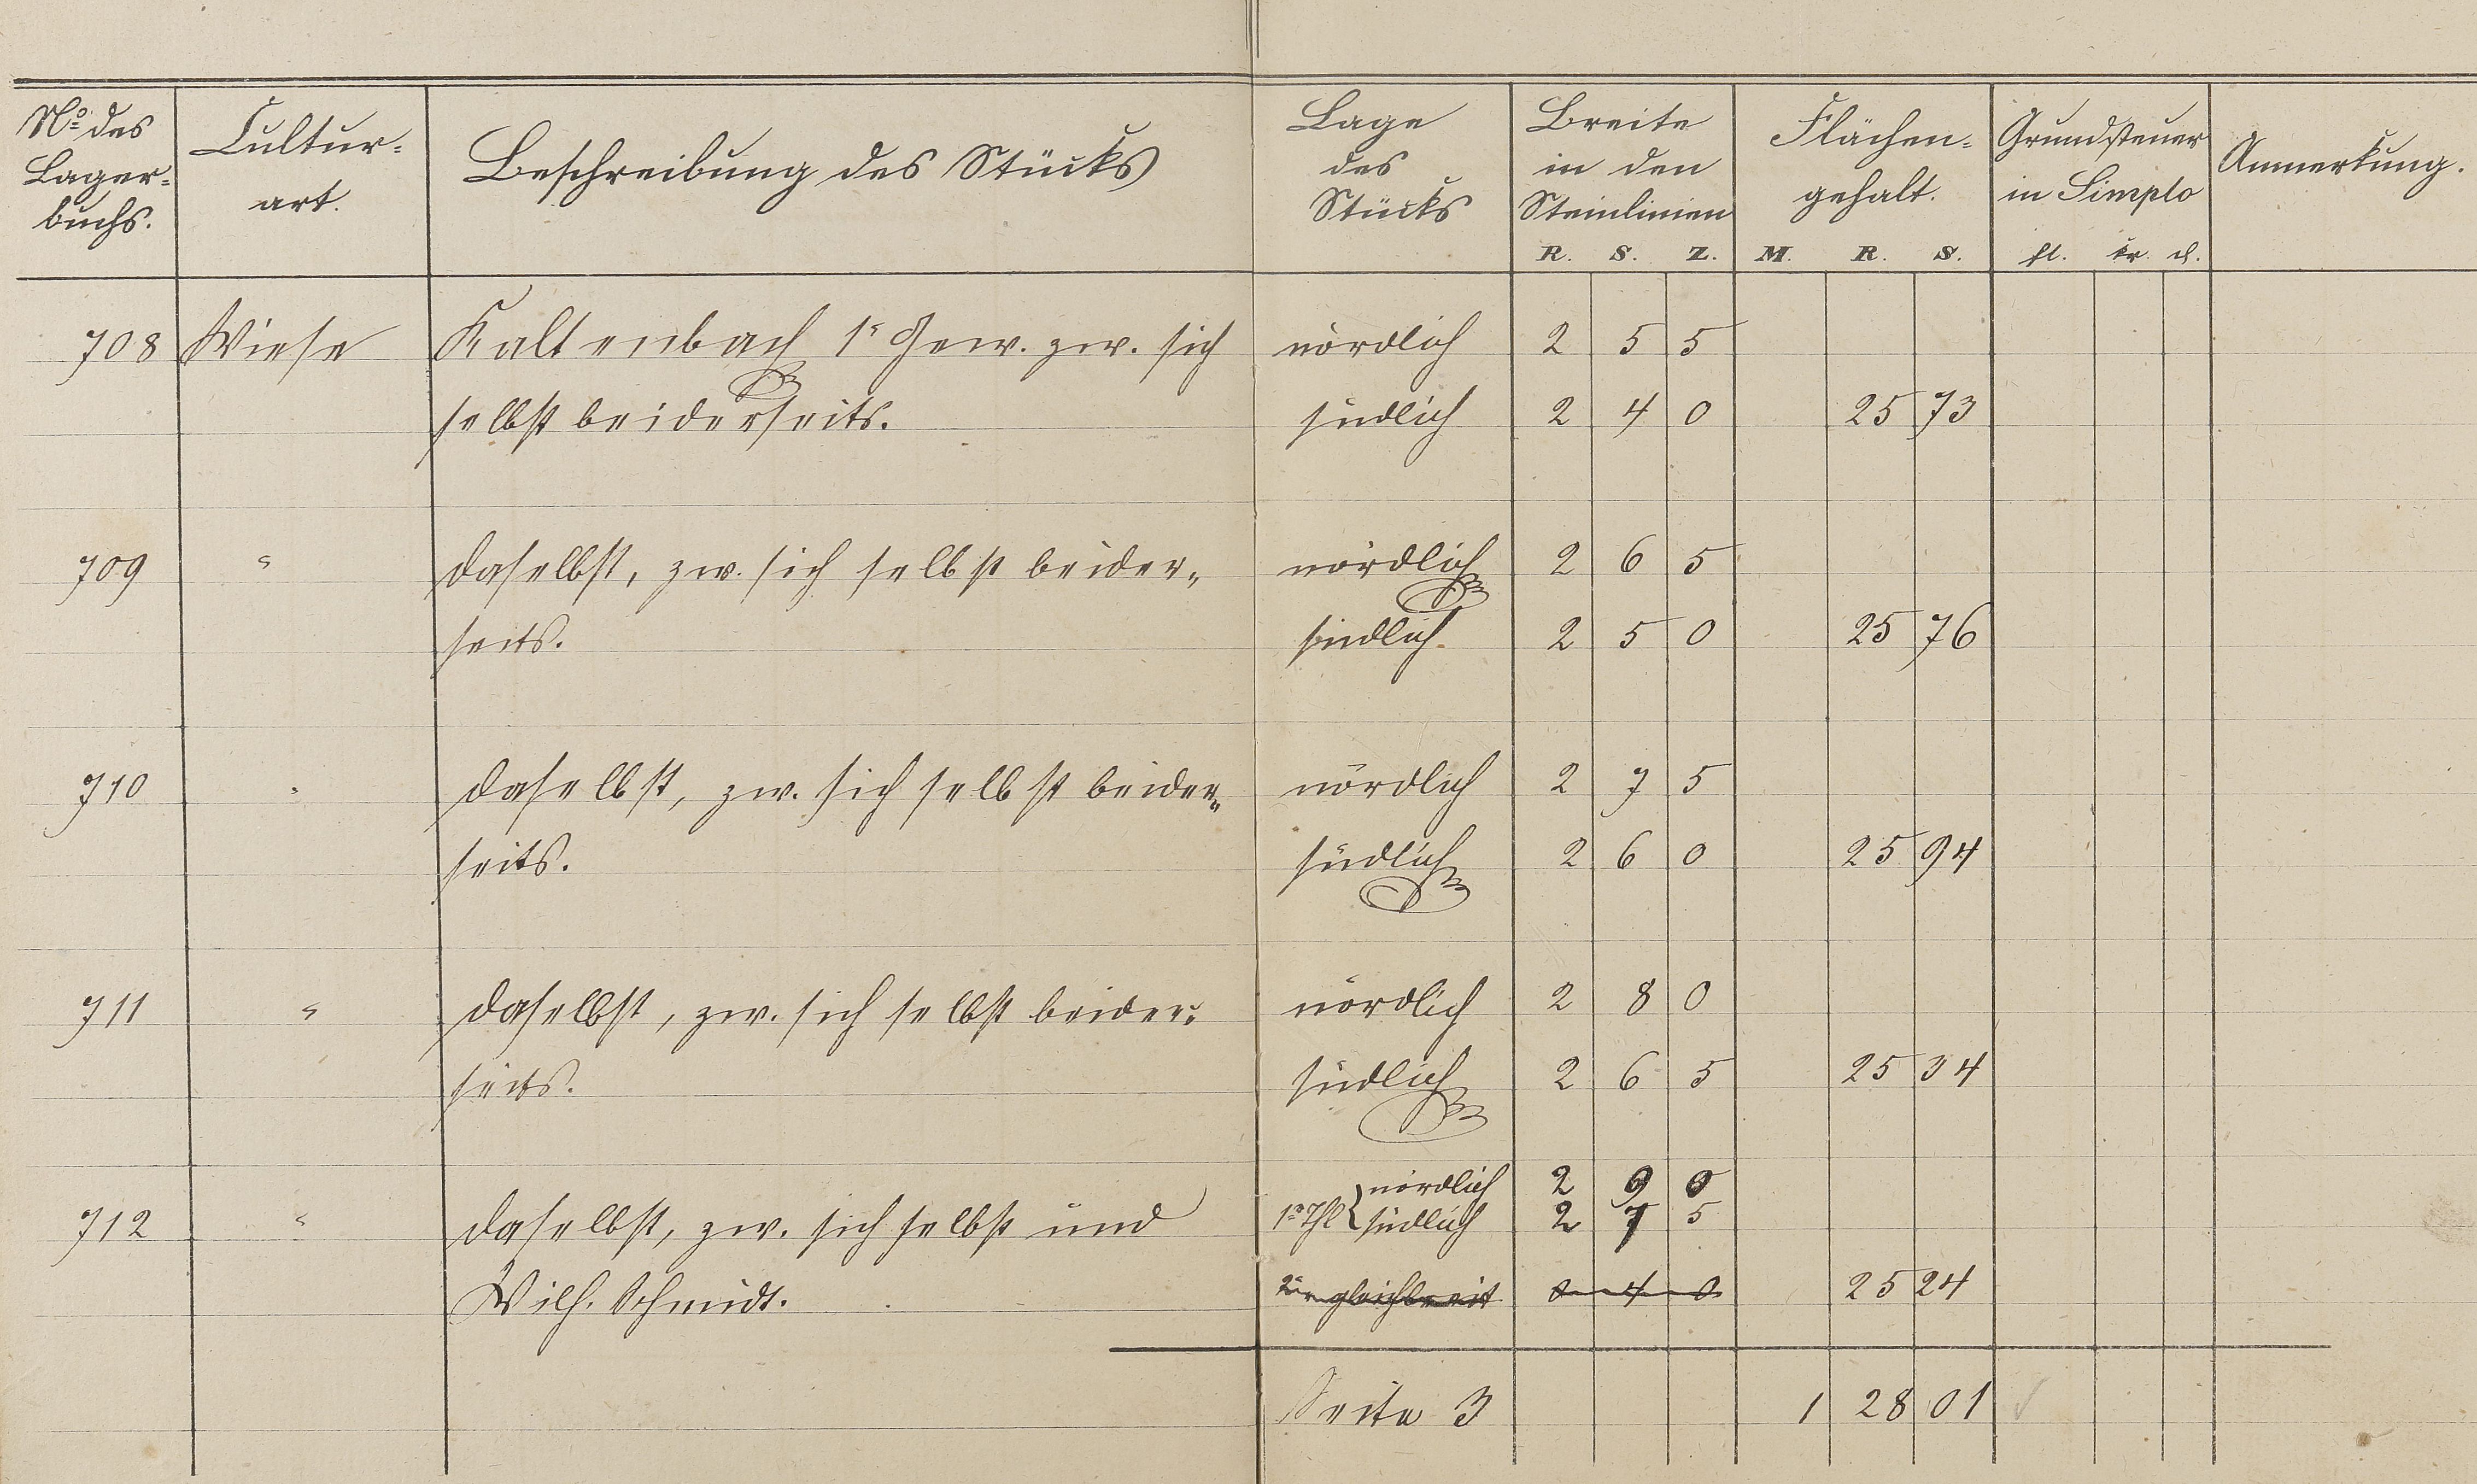 No des Lager= buchs.
Cultur= art.
Beschreibung des Stücks
Lage des Stücks
Breite in den Steinlinien
R. S. Z.
Flächen= gehalt.
M. R. S.
Grundsteuer in Simplo
fl. kr. d.
Anmerkung.
708 Wiese Kaltenbach 1r Gew. zw. sich nördlich 2 5 5
selbst beiderseits. südlich 2 4 0 25 73
709 " daselbst, zw. sich selbst beider„ nördlich 2 6 5
seits. südlich 2 5 0 25 76
710 " daselbst, zw. sich selbst beider„ nördlich 2 7 5
seits. südlich 2 6 0 25 94
711 " daselbst, zw. sich selbst beider„ nördlich 2 8 0
seits. südlich 2 6 5 25 34
nördlich 2 9 0
712 " daselbst, zw. sich selbst und 1r Thl südlich 2 7 5
Wilh. Schmidt. 2r gleichbreit 0 4 0 25 24
Seite 3 1 28 01